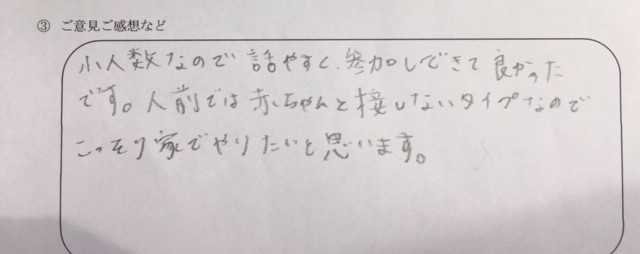 ③ ご意見ご感想など
小人数なので話やすく、参加しできて良かった
です。人前では赤ちゃんと接しないタイプなので
こっそり家でやりたいと思います。